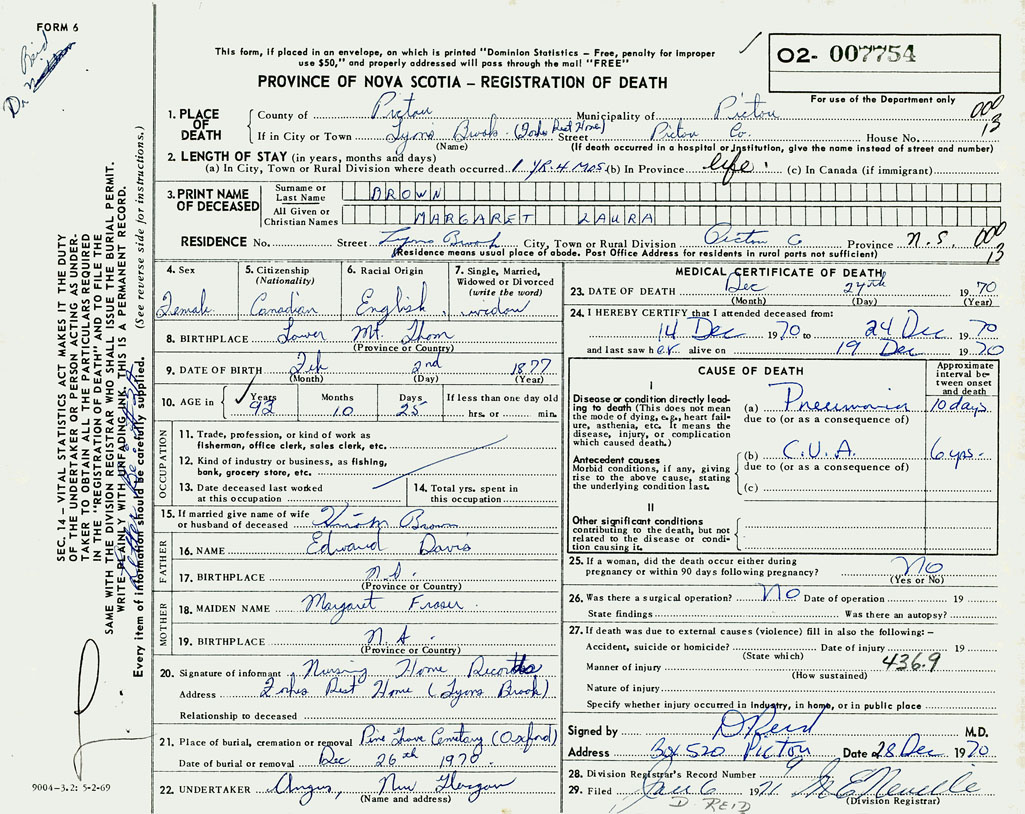 FORM 6
Reid
Dr.
This form, if placed in an envelope, on which is printed "Dominion Statistics – Free, penalty for improper
use $50," and properly addressed will pass through the mail "FREE"
O2- 007754
For use of the Department only
PROVINCE OF NOVA SCOTIA – REGISTRATION OF DEATH
1. PLACE OF DEATH
County of Pictou Municipality of Pictou 000
If in City or Town Lyons Brook ( Rest Home) Street Pictou Co. House No. 13
(Name) (If death occurred in a hospital or Institution, give the name instead of street and number)
2. LENGTH OF STAY (in years, months and days)
(a) In City, Town or Rural Division where death occurred 1 YR. 4 Mos (b) In Province life. (c) In Canada (if immigrant)
3. PRINT NAME OF DECEASED
Surname or Last Name BROWN
All Given or Christian Names MARGARET LAURA
RESIDENCE No. Street Lyons Brook City, Town or Rural Division Pictou Co Province N.S. 000
13
(Residence means usual place of abode. Post Office Address for residents in rural parts not sufficient)
4. Sex
Female
5. Citizenship
(Nationality)
Canadian
6. Racial Origin
English.
7. Single, Married,
Widowed or Divorced
(write the word)
widow
8. BIRTHPLACE Lower Mt. Thom
(Province or Country)
9. DATE OF BIRTH Feb 2nd 1877
(Month) (Day) (Year)
10. AGE in
Years Months Days If less than one day old
93 10 25 hrs. or min.
OCCUPATION
11. Trade, profession, or kind of work as
fisherman, office clerk, sales clerk, etc.
12. Kind of industry or business, as fishing,
bank, grocery store, etc.
13. Date deceased last worked
at this occupation
14. Total yrs. spent in
this occupation
15. If married give name of wife
or husband of deceased Brown
FATHER
16. NAME Edward Davis
17. BIRTHPLACE N.S.
(Province or Country)
MOTHER
18. MAIDEN NAME Margaret Fraser.
19. BIRTHPLACE N.S.
(Province or Country)
20. Signature of informant Nursing Home Records
Address Rest Home (Lyons Brook)
Relationship to deceased
21. Place of burial, cremation or removal Pine Grove Cemetary (Oxford)
Date of burial or removal Dec 26th 1970.
22. UNDERTAKER Angus, New Glasgow
(Name and address)
MEDICAL CERTIFICATE OF DEATH
23. DATE OF DEATH Dec 24th 1970
(Month) (Day) (Year)
24. I HEREBY CERTIFY that I attended deceased from:
14 Dec 1970 to 24 Dec 1970
and last saw her alive on 19 Dec 1970
CAUSE OF DEATH
Approximate
interval be-
tween onset
and death
I
Disease or condition directly lead-
ing to death (This does not mean
the mode of dying, e.g., heart fail-
ure, asthenia, etc. It means the
disease, injury, or complication
which caused death.)
(a) Pneumonia 10 days
due to (or as a consequence of)
Antecedent causes
Morbid conditions, if any, giving
rise to the above cause, stating
the underlying condition last.
(b) C.V.A. 6 yrs.
due to (or as a consequence of)
(c)
II
Other significant conditions
contributing to the death, but not
related to the disease or condi-
tion causing it.
25. If a woman, did the death occur either during
pregnancy or within 90 days following pregnancy? No
(Yes or No)
26. Was there a surgical operation? No Date of operation 19
State findings Was there an autopsy?
27. If death was due to external causes (violence) fill in also the following: –
Accident, suicide or homicide? Date of injury 19
(State which)
Manner of injury 436.9
(How sustained)
Nature of injury
Specify whether injury occurred in Industry, in home, or in public place
Signed by D Reid M.D.
Address Bx 520 Picton Date 28 Dec 1970
28. Division Registrar's Record Number 9
29. Filed Jan 6 1971
(Division Registrar)
D. REID
SEC. 14 – VITAL STATISTICS ACT MAKES IT THE DUTY
OF THE UNDERTAKER OR PERSON ACTING AS UNDER-
TAKER TO OBTAIN ALL THE PARTICULARS REQUIRED
IN THE "REGISTRATION OF DEATH" AND TO FILE THE
SAME WITH THE DIVISION REGISTRAR WHO SHALL ISSUE THE BURIAL PERMIT.
WRITE PLAINLY WITH UNFADING INK. THIS IS A PERMANENT RECORD.
Every item of information should be carefully supplied. (See reverse side for instructions.)
9004-3.2: 5-2-69